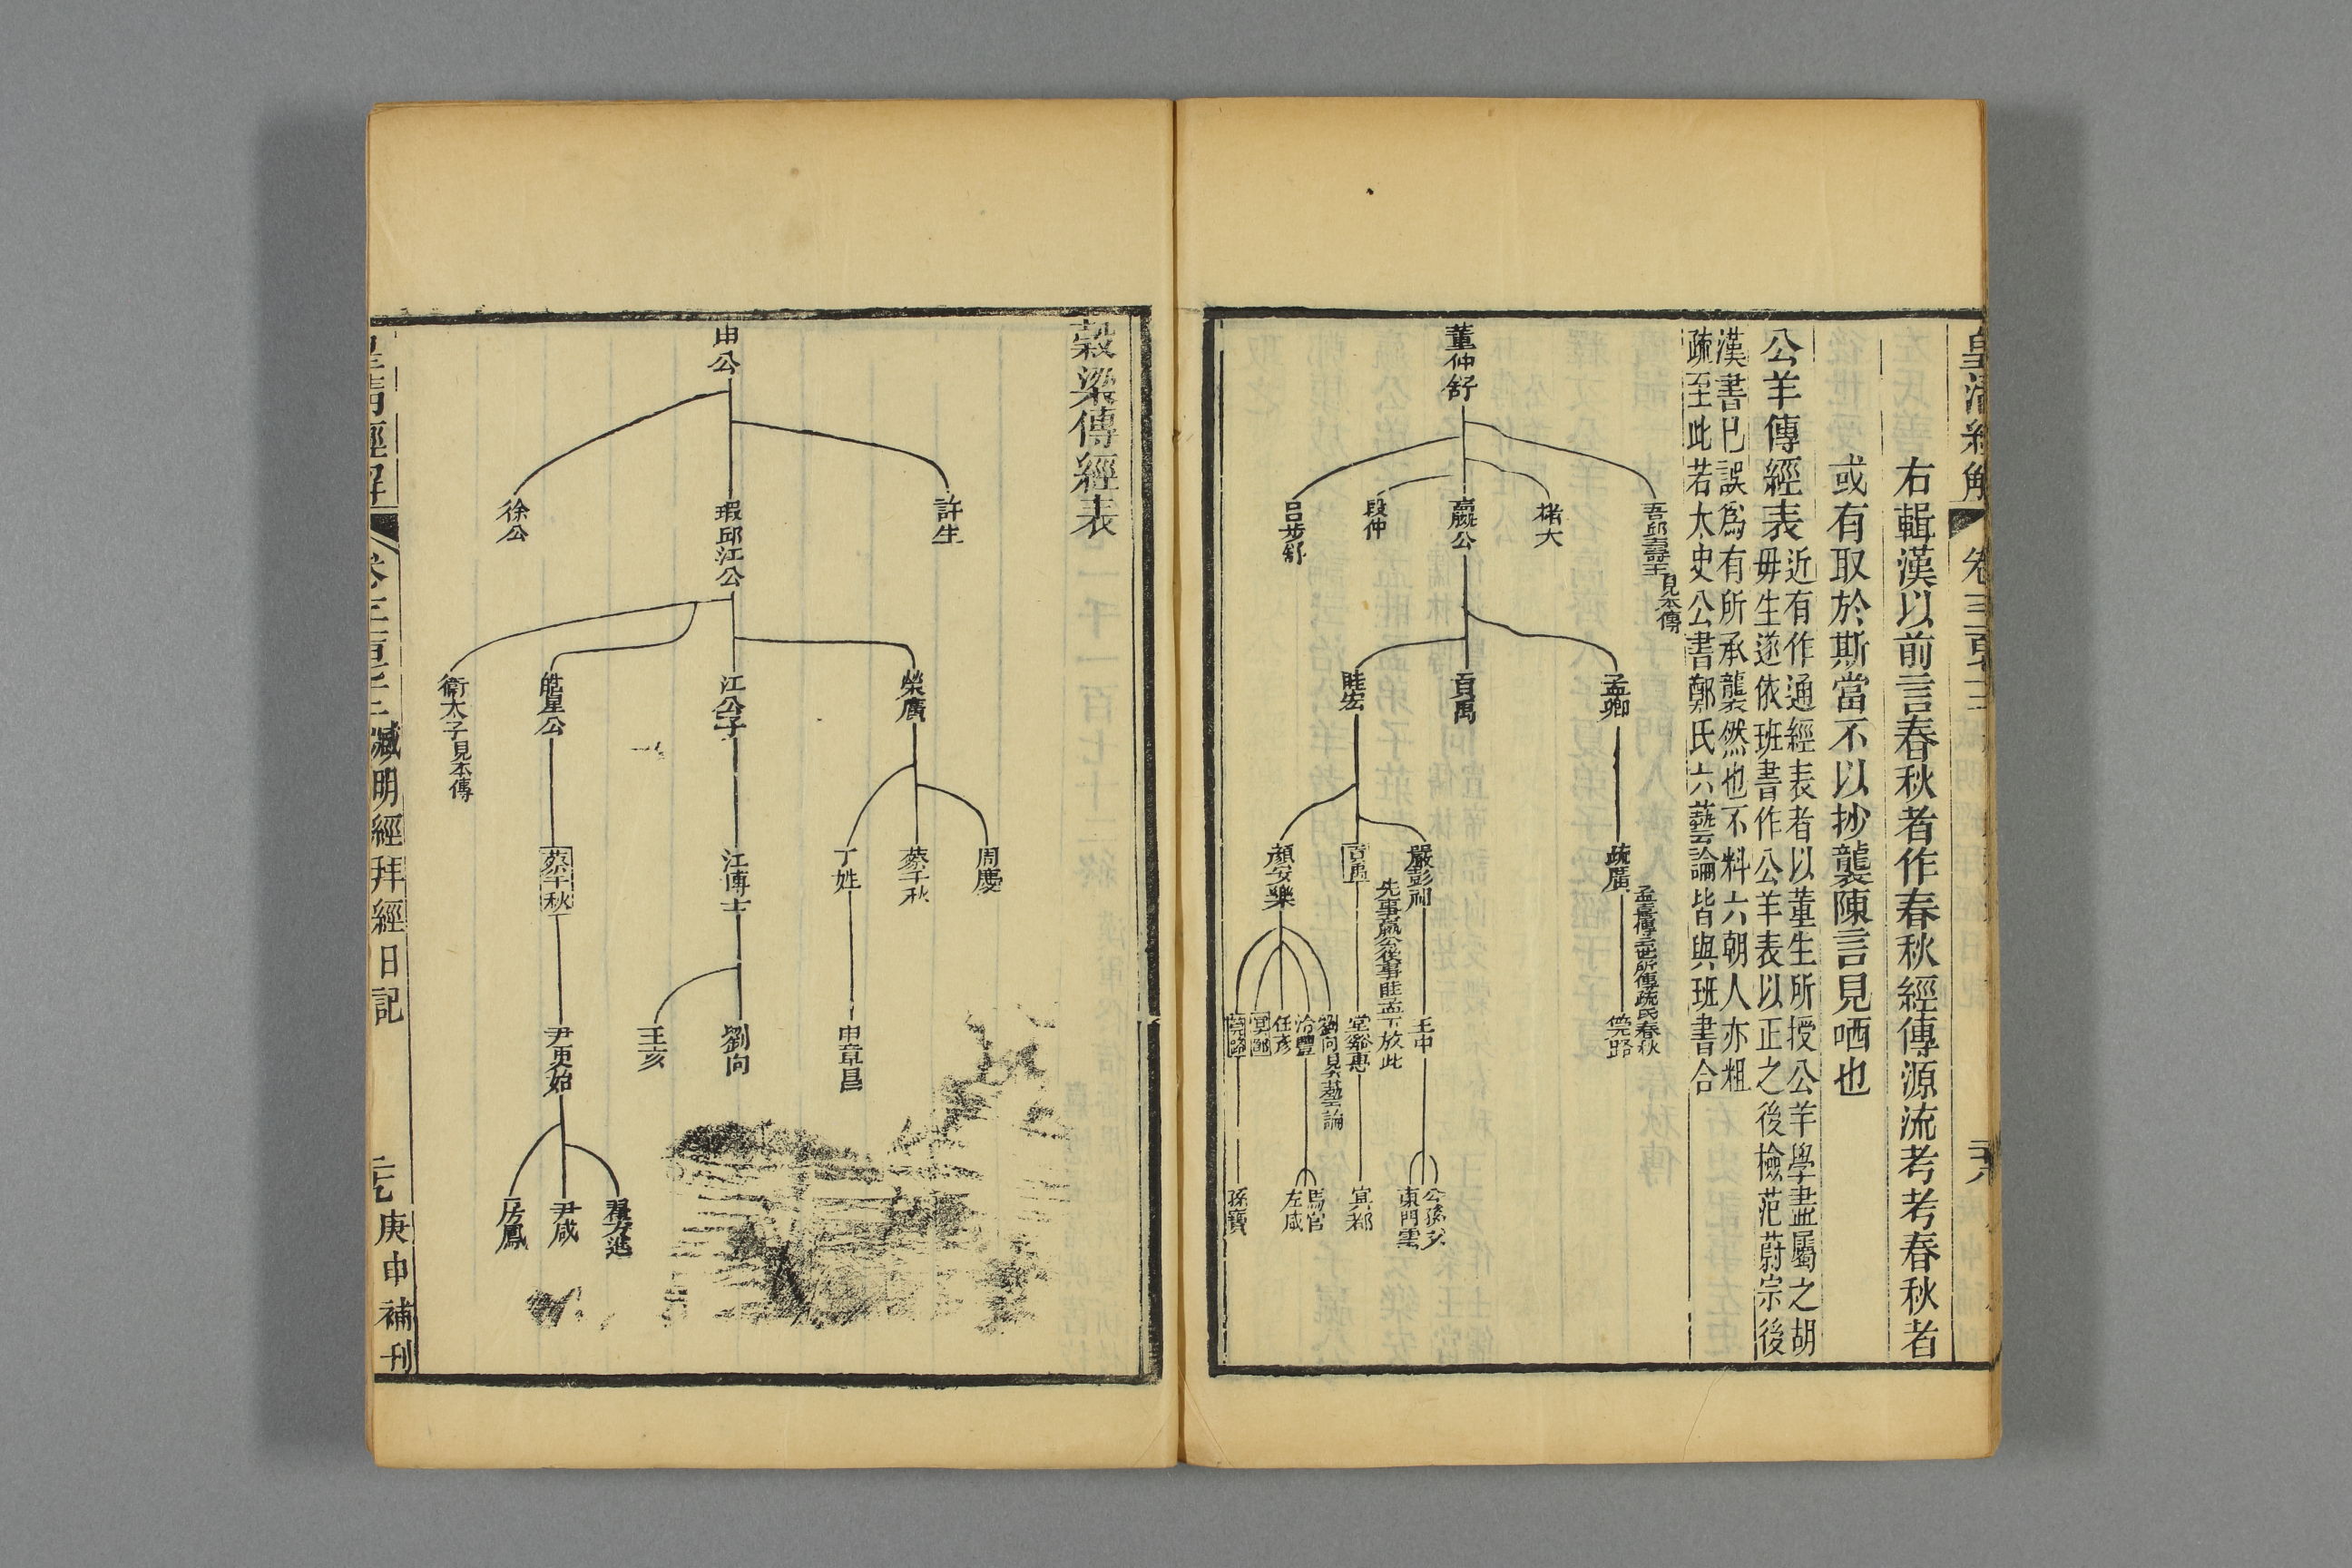 皇清經解
卷三百
右輯漢以前言春秋者作春秋經傳源流考考春秋者
或有取於斯當不以抄襲陳言見哂也
公羊傳經表
近有作通經表者以董生所授公羊學盡屬之胡
毋生遂依班書作公羊表以正之後檢范蔚宗後
漢書已誤爲有所承襲然也不料六朝人亦粗
疏至此若太史公書鄭氏六藝論皆與班書合
董仲舒
吾邱壽王見本傳
褚大
嬴公
段仲
呂步舒
孟卿
貢禹
眭宏
疏廣
孟喜傳云世所傳疏氏春秋
嚴彭祖
先事嬴公後事眭孟下放此
貢禹
顏安樂
筦路
王中
堂谿惠
劉向見六藝論
泠豐
任彥
冥都
筦路
公孫文
東門雲
冥都
馬宮
左咸
孫寶
穀梁傳經表
申公
許生
瑕邱江公
徐公
榮廣
江公子
皓星公
衛太子見本傳
周慶
蔡千秋
丁姓
江博士
蔡千秋
申章昌
劉向
王亥
尹更始
翟方進
尹咸
房鳳
皇清經解
臧明經拜經日記
庚申補刊